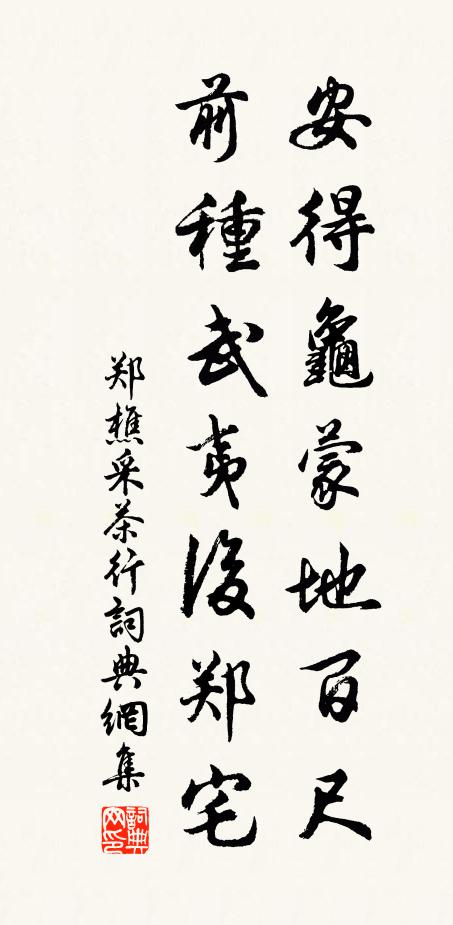 安得龜蒙地百尺
前種武夷後郑宅
郑樵采茶行詞典網集
詞典网印